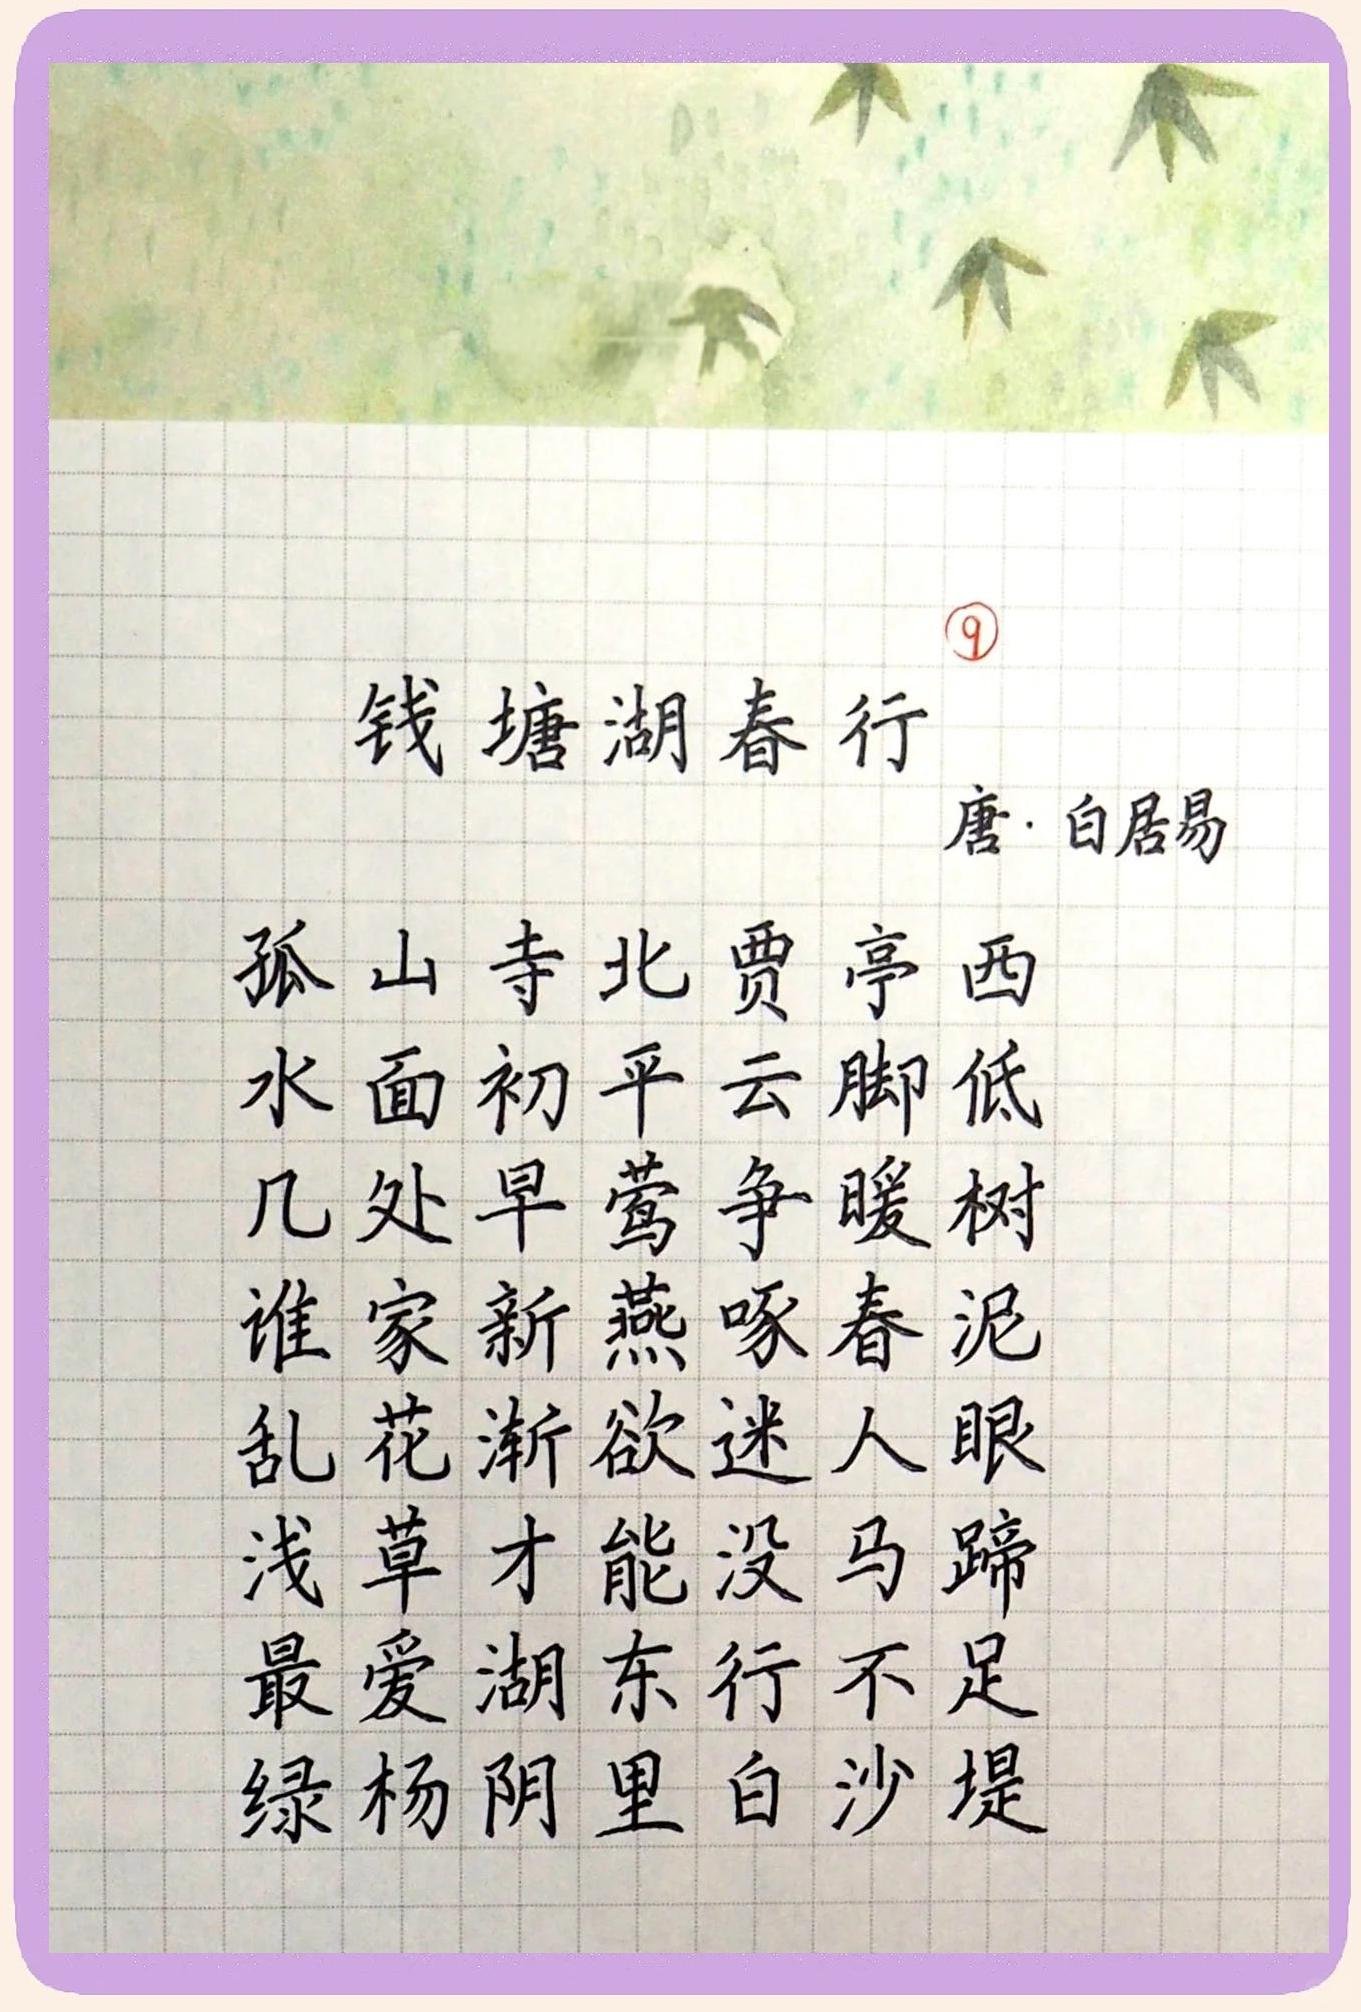 ⑨
钱塘湖春行
唐·白居易
孤山寺北贾亭西
水面初平云脚低
几处早莺争暖树
谁家新燕啄春泥
乱花渐欲迷人眼
浅草才能没马蹄
最爱湖东行不足
绿杨阴里白沙堤